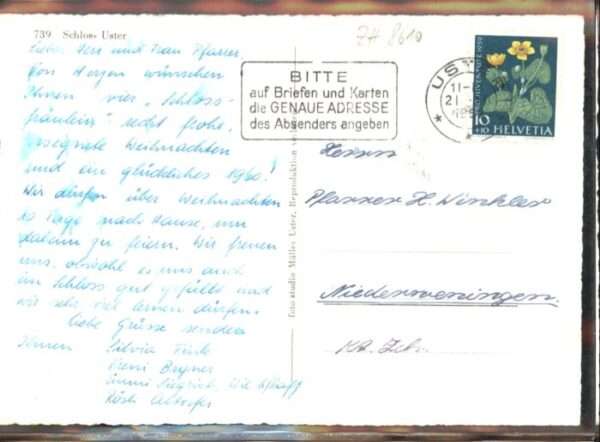 739 Schloss Uster
ZH 8610
Lieber Herr und Frau Pfarrer,
Von Herzen wünschen
Ihnen vier "Schloss-
fräulein" recht frohe,
gesegnete Weihnachten
und ein glückliches 1960!
Wir dürfen über Weihnachten
10 Tage nach Hause, um
daheim zu feiern. Wir freuen
uns, obwohl es uns auch
im Schloss gut gefällt und
wir sehr viel lernen dürfen.
Liebe Grüsse senden
Ihnen Silvia
Vreni
Foto-studio Müller Uster, Reproduktion
BITTE
auf Briefen und Karten
die GENAUE ADRESSE
des Absenders angeben
USTER
PRO JUVENTUTE 1959
10
+10 HELVETIA
Herrn
Pfarrer H. Winkler
Niederweningen
Kt. Zch.